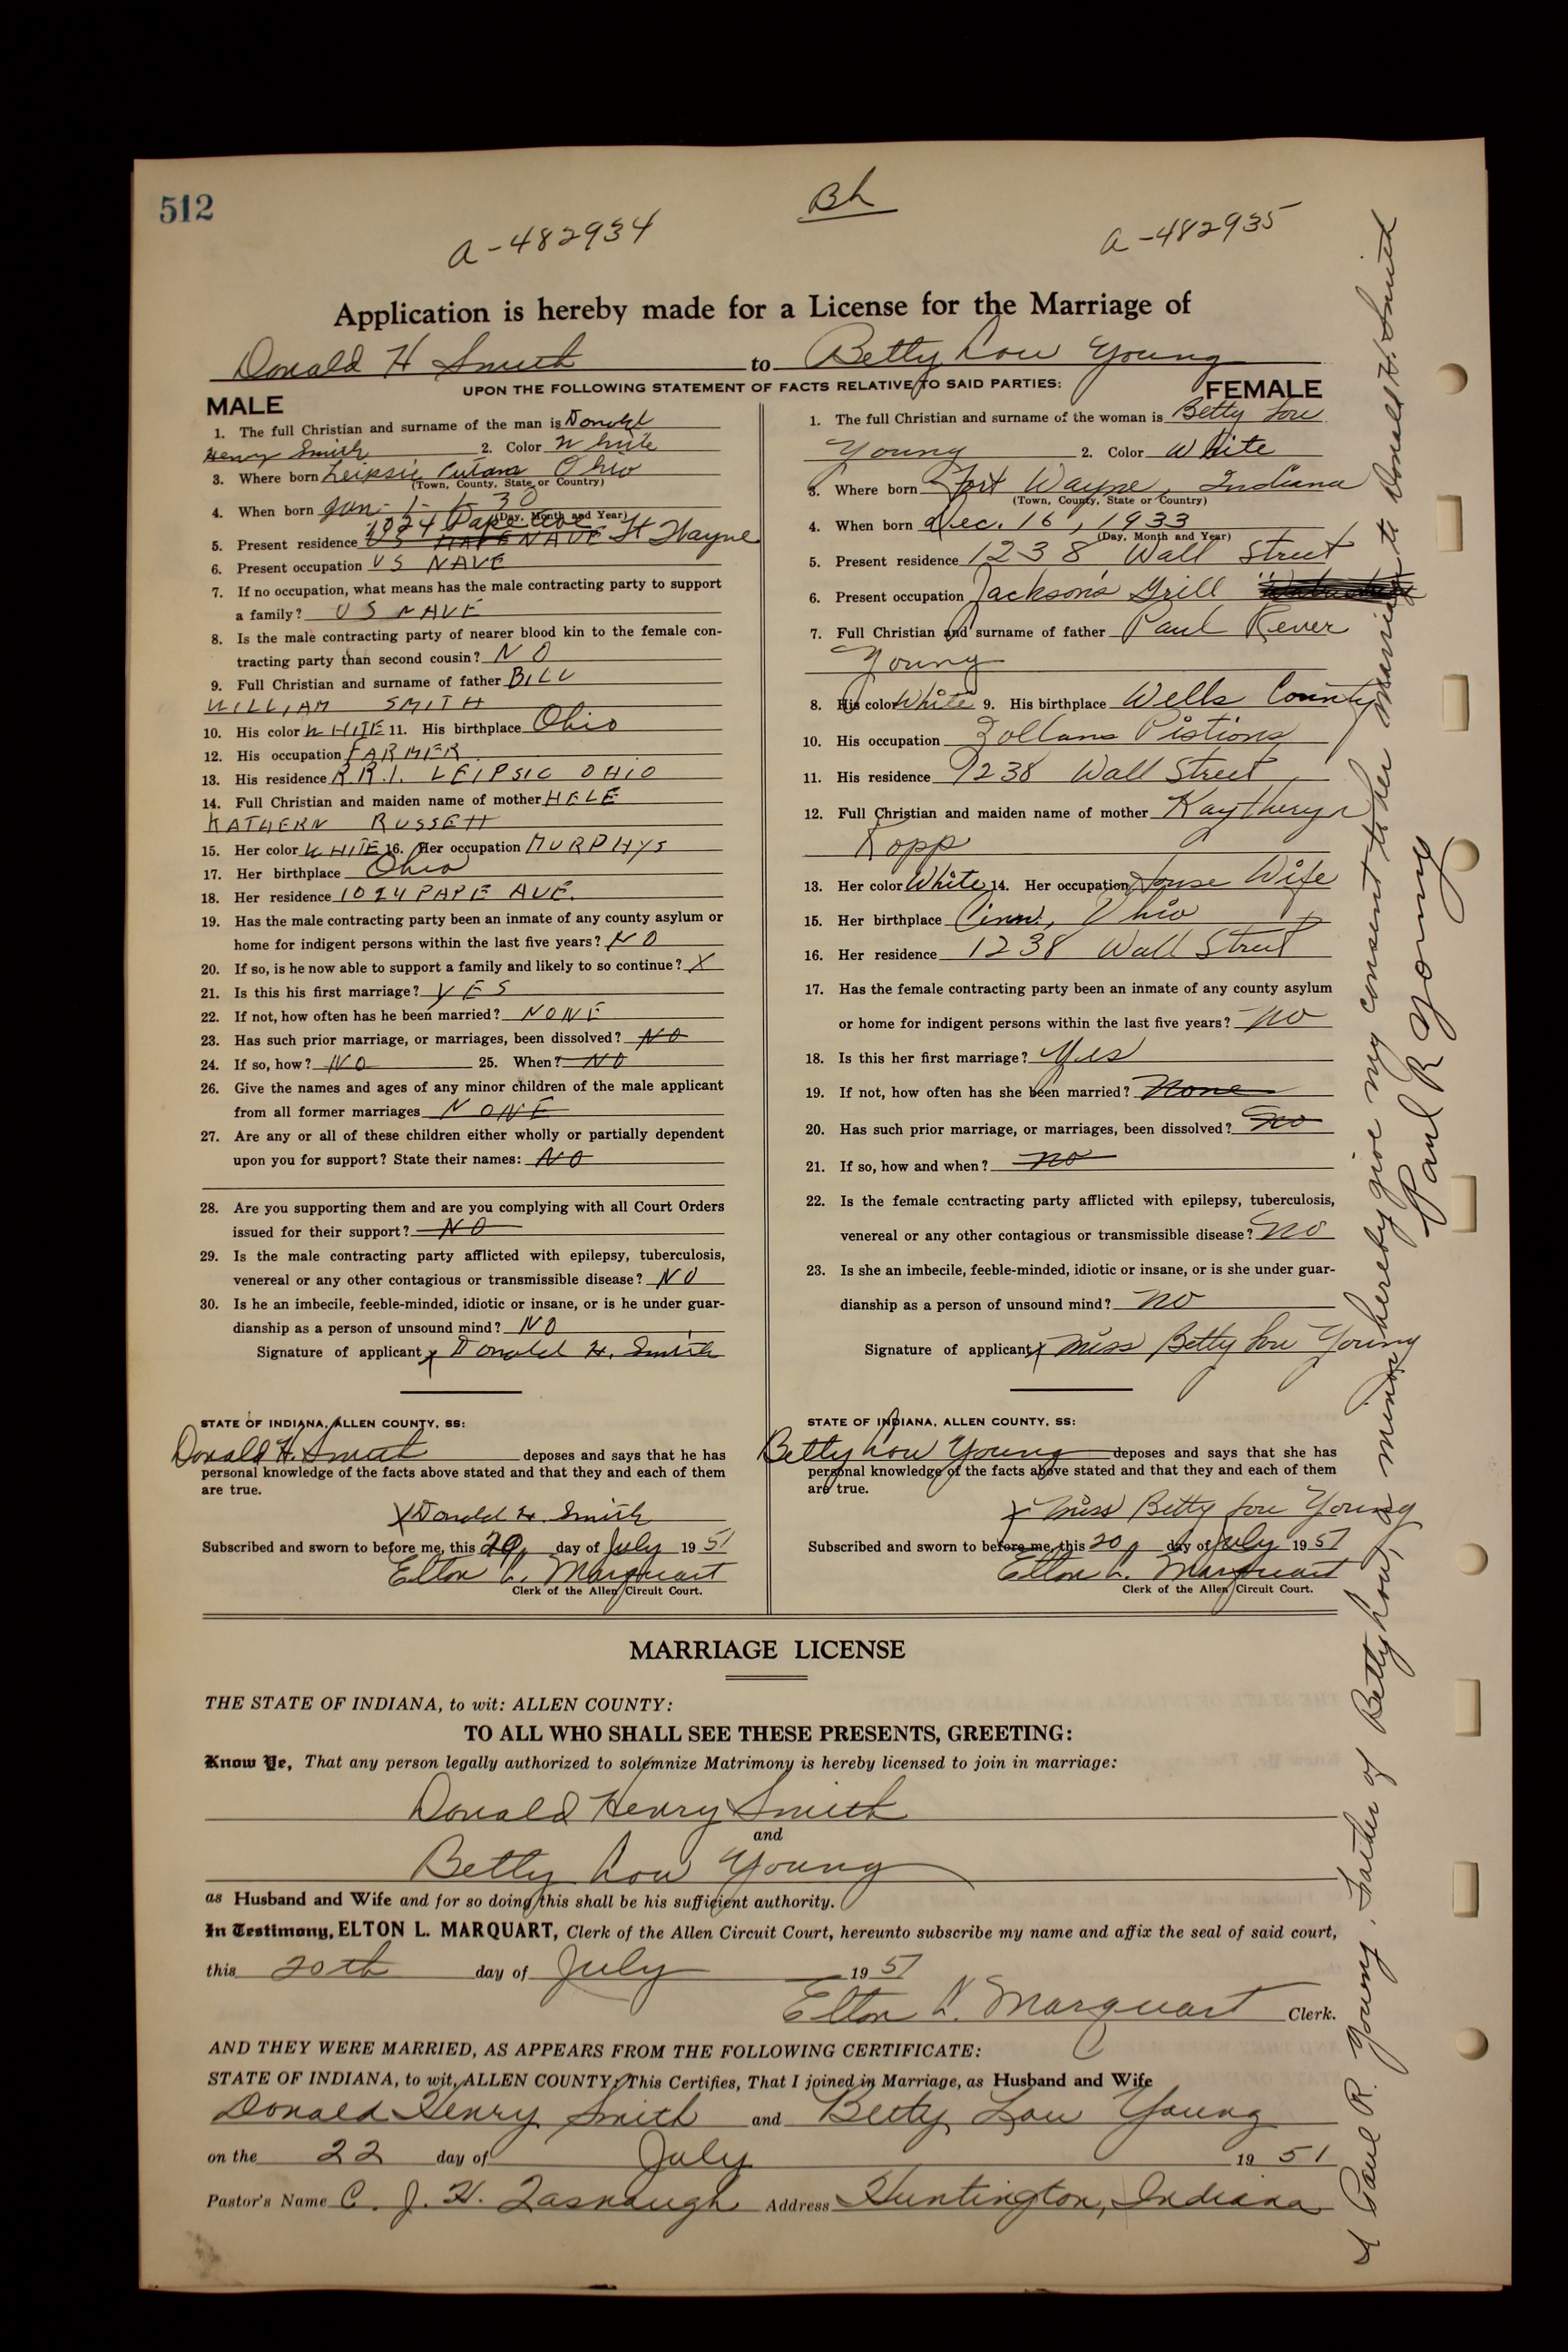 512
Bh
a-482934
a-482935
Application is hereby made for a License for the Marriage of
Donald H Smith to Betty Lou Young
UPON THE FOLLOWING STATEMENT OF FACTS RELATIVE TO SAID PARTIES:
MALE
1. The full Christian and surname of the man is Donald
Henry Smith 2. Color White
3. Where born Leipsic Ohio
(Town, County, State or Country)
4. When born Jan - 1 - 30
(Day, Month and Year)
1024 Pape Ave
5. Present residence Ft Wayne
6. Present occupation US NAVE
7. If no occupation, what means has the male contracting party to support
a family? US NAVE
8. Is the male contracting party of nearer blood kin to the female con-
tracting party than second cousin? NO
9. Full Christian and surname of father BILL
WILLIAM SMITH
10. His color WHITE 11. His birthplace Ohio
12. His occupation FARMER
13. His residence R.R.1. LEIPSIC OHIO
14. Full Christian and maiden name of mother HELE
KATHERN
15. Her color WHITE 16. Her occupation MURPHYS
17. Her birthplace Ohio
18. Her residence 1024 PAPE AVE.
19. Has the male contracting party been an inmate of any county asylum or
home for indigent persons within the last five years? NO
20. If so, is he now able to support a family and likely to so continue? X
21. Is this his first marriage? YES
22. If not, how often has he been married? NONE
23. Has such prior marriage, or marriages, been dissolved? NO
24. If so, how? NO 25. When? NO
26. Give the names and ages of any minor children of the male applicant
from all former marriages NONE
27. Are any or all of these children either wholly or partially dependent
upon you for support? State their names: NO
28. Are you supporting them and are you complying with all Court Orders
issued for their support? NO
29. Is the male contracting party afflicted with epilepsy, tuberculosis,
venereal or any other contagious or transmissible disease? NO
30. Is he an imbecile, feeble-minded, idiotic or insane, or is he under guar-
dianship as a person of unsound mind? NO
Signature of applicant x Donald H. Smith
STATE OF INDIANA, ALLEN COUNTY, SS:
Donald H. Smith deposes and says that he has
personal knowledge of the facts above stated and that they and each of them
are true.
X Donald H. Smith
Subscribed and sworn to before me, this 20, day of July 19 51
Elton L. Marquart
Clerk of the Allen Circuit Court.
FEMALE
1. The full Christian and surname of the woman is Betty Lou
Young 2. Color White
3. Where born Fort Wayne, Indiana
(Town, County, State or Country)
4. When born Dec. 16, 1933
(Day, Month and Year)
5. Present residence 1238 Wall Street
6. Present occupation Jackson's Grill
7. Full Christian and surname of father Paul Rever
Young
8. His color White 9. His birthplace Wells County
10. His occupation Zollans Pistions
11. His residence 1238 Wall Street
12. Full Christian and maiden name of mother Kaytheryn
Kopp
13. Her color White 14. Her occupation House Wife
15. Her birthplace Cinn., Ohio
16. Her residence 1238 Wall Street
17. Has the female contracting party been an inmate of any county asylum
or home for indigent persons within the last five years? no
18. Is this her first marriage? Yes
19. If not, how often has she been married? None
20. Has such prior marriage, or marriages, been dissolved? no
21. If so, how and when? no
22. Is the female contracting party afflicted with epilepsy, tuberculosis,
venereal or any other contagious or transmissible disease? no
23. Is she an imbecile, feeble-minded, idiotic or insane, or is she under guar-
dianship as a person of unsound mind? no
Signature of applicant x Miss Betty Lou Young
STATE OF INDIANA, ALLEN COUNTY, SS:
Betty Lou Young deposes and says that she has
personal knowledge of the facts above stated and that they and each of them
are true.
x Miss Betty Lou Young
Subscribed and sworn to before me, this 20, day of July 19 51
Elton L. Marquart
Clerk of the Allen Circuit Court.
MARRIAGE LICENSE
THE STATE OF INDIANA, to wit: ALLEN COUNTY:
TO ALL WHO SHALL SEE THESE PRESENTS, GREETING:
Know Ye, That any person legally authorized to solemnize Matrimony is hereby licensed to join in marriage:
Donald Henry Smith
and
Betty Lou Young
as Husband and Wife and for so doing this shall be his sufficient authority.
In Testimony, ELTON L. MARQUART, Clerk of the Allen Circuit Court, hereunto subscribe my name and affix the seal of said court,
this 20th day of July 19 51
Elton L. Marquart Clerk.
AND THEY WERE MARRIED, AS APPEARS FROM THE FOLLOWING CERTIFICATE:
STATE OF INDIANA, to wit, ALLEN COUNTY: This Certifies, That I joined in Marriage, as Husband and Wife
Donald Henry Smith and Betty Lou Young
on the 22 day of July 19 51
Pastor's Name C. J. H. Address Huntington, Indiana
I Paul R. Young, Father of Betty Lou, minor hereby give my consent to her marriage to Donald H. Smith
Paul R Young